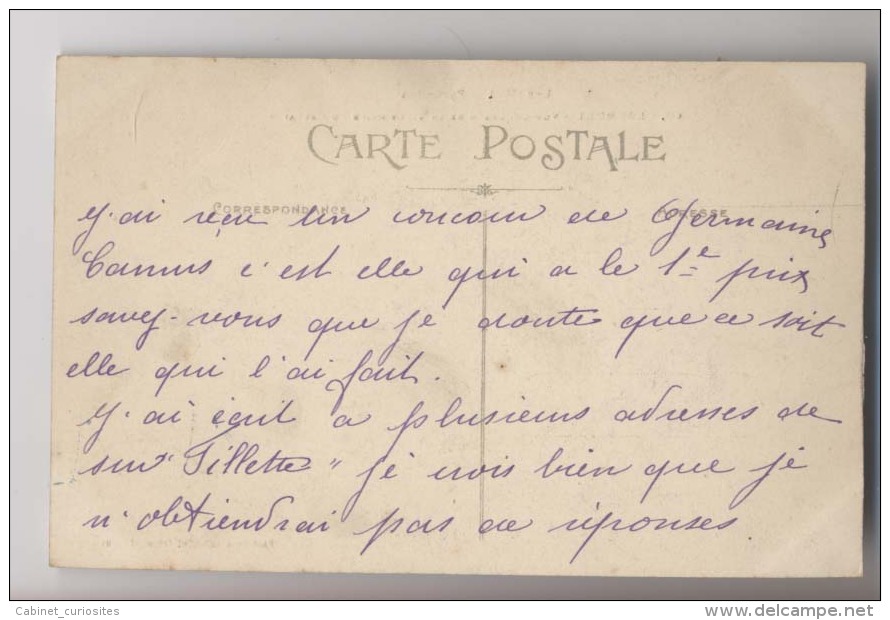 CARTE POSTALE
CORRESPONDANCE ADRESSE
J'ai reçu un concour de Germaine
Camus c'est elle qui a le 1e prix
savez-vous que je doute que ce soit
elle qui l'ai fait.
J'ai écrit a plusieurs adresses de
sur "Fillette" je crois bien que je
n'obtiendrai pas de réponses
Cabinet_curiosites
http://www.delcampe.net